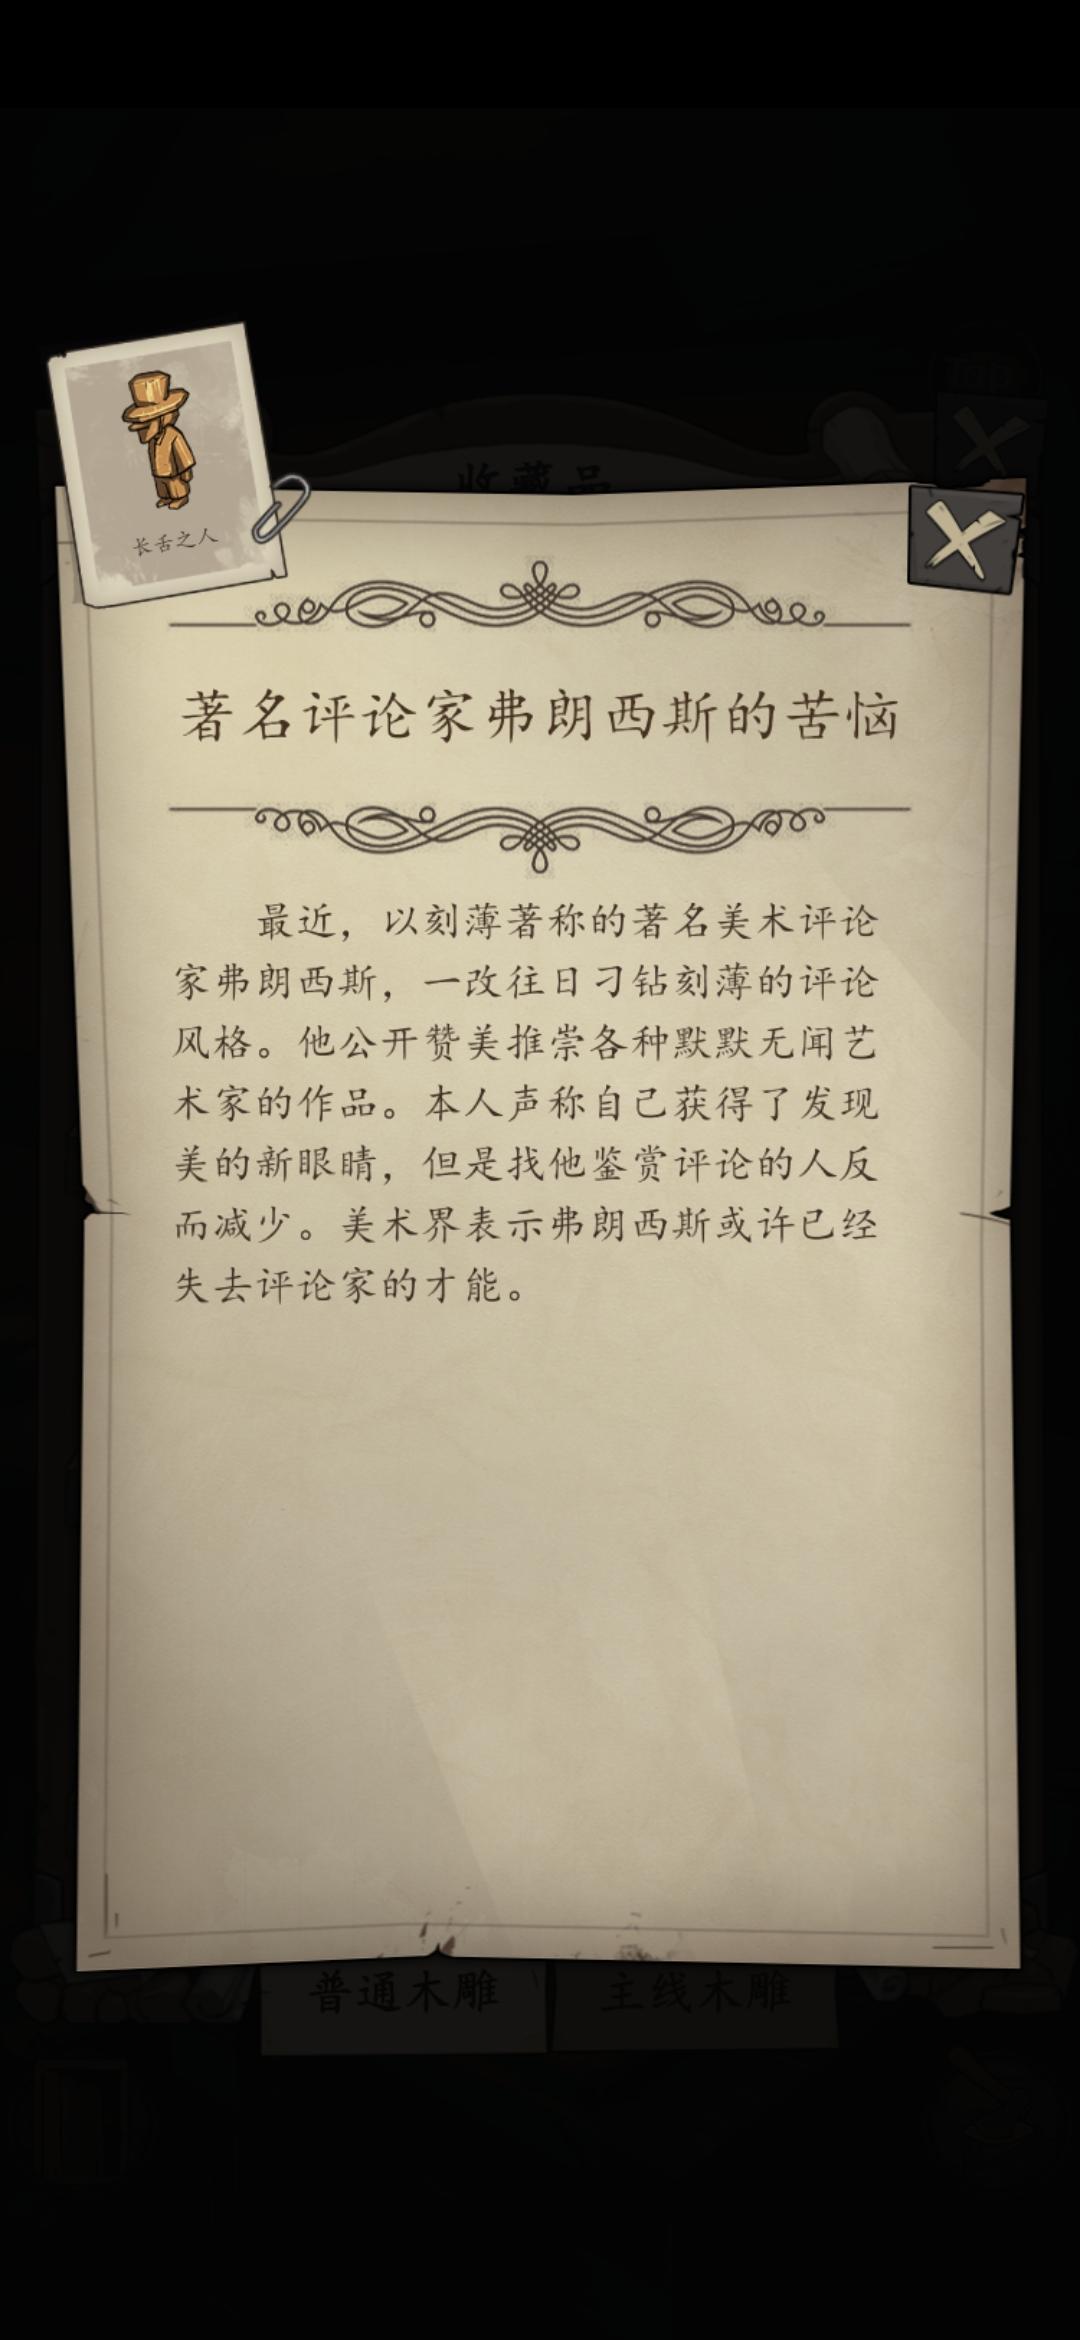 收藏品
长舌之人
著名评论家弗朗西斯的苦恼
最近，以刻薄著称的著名美术评论
家弗朗西斯，一改往日刁钻刻薄的评论
风格。他公开赞美推崇各种默默无闻艺
术家的作品。本人声称自己获得了发现
美的新眼睛，但是找他鉴赏评论的人反
而减少。美术界表示弗朗西斯或许已经
失去评论家的才能。
普通木雕
主线木雕